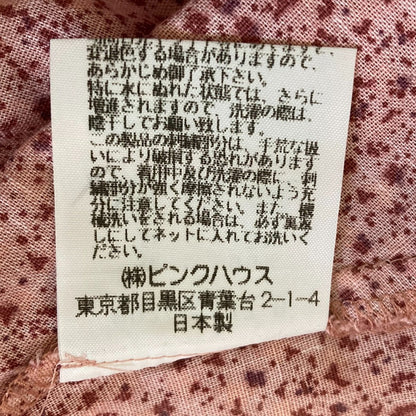 衰退色する場合がありますので、
あらかじめ御了承下さい。
特に水にぬれた状態では、さらに
増進されますので、洗濯の際は、
陰干してお願い致します。
この製品の刺繍部分は、手荒な扱
いにより破損する恐れがあります
ので、着用中及び洗濯の際に、刺
繍部分が強く摩擦されないよう充
分に注意してください。また、機
械洗いをされる場合は、必ず裏返
しにしてネットに入れてお洗いく
ださい。
㈱ピンクハウス
東京都目黒区青葉台2-1-4
日本製